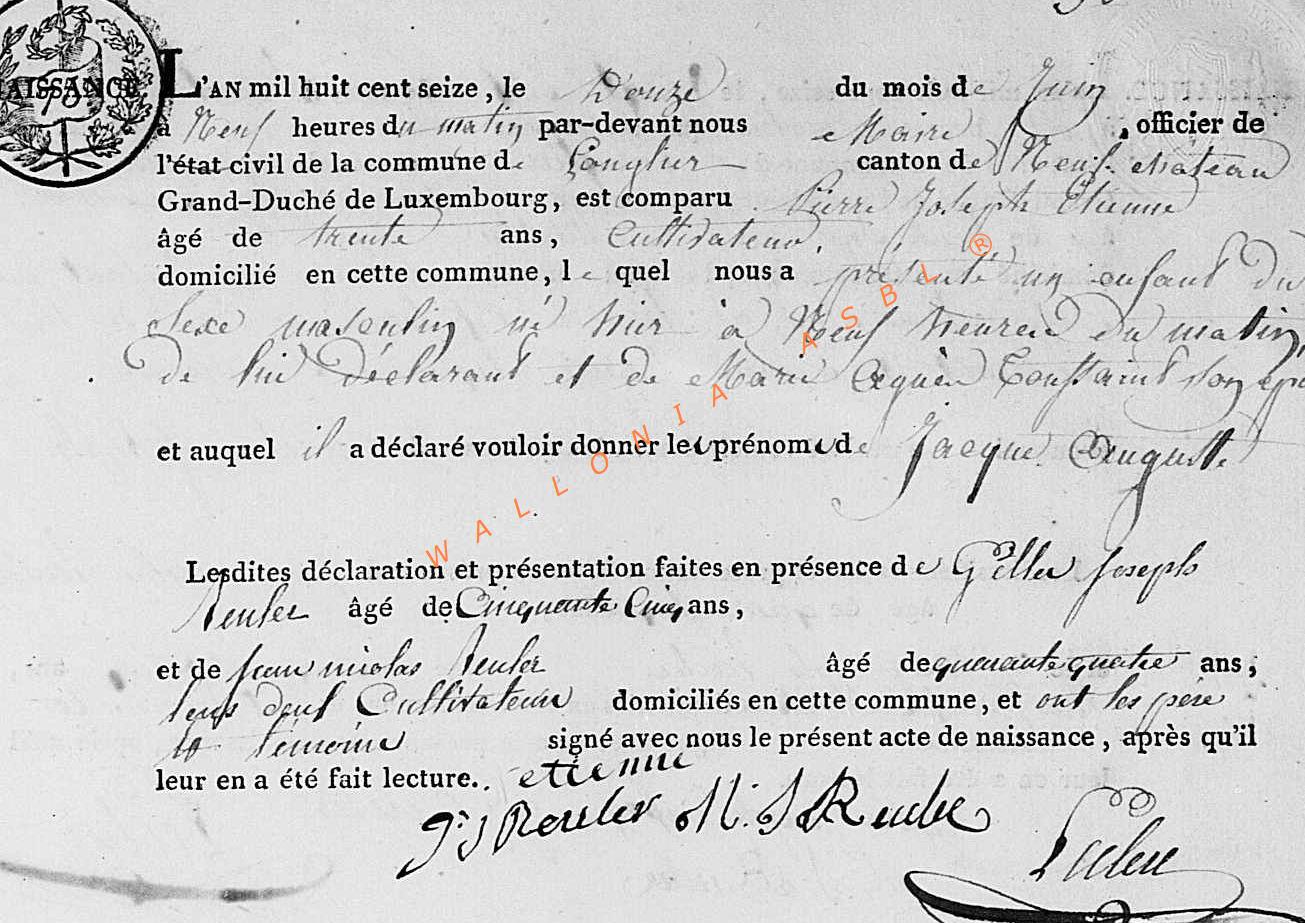 NAISSANCE. L'AN mil huit cent seize, le Douze du mois de Juin
à Neuf heures du matin par-devant nous Maire, officier de
l'état civil de la commune de Longlier canton de Neufchâteau
Grand-Duché de Luxembourg, est comparu Pierre Joseph Etienne
âgé de trente ans, Cultivateur,
domicilié en cette commune, le quel nous a présenté un enfant du
Sexe masculin né hier à Neuf heures du matin,
de lui déclarant et de Marie Agnès Toussaint son
et auquel il a déclaré vouloir donner les prénoms de Jacque Auguste
Lesdites déclaration et présentation faites en présence de Gilles Joseph
Reuler âgé de Cinquante Cinq ans,
et de jean nicolas Reuler âgé de quarante quatre ans,
tous deux Cultivateurs domiciliés en cette commune, et ont les père
et témoins signé avec nous le présent acte de naissance, après qu'il
leur en a été fait lecture.. etienne
WALLONIA ASBL ®